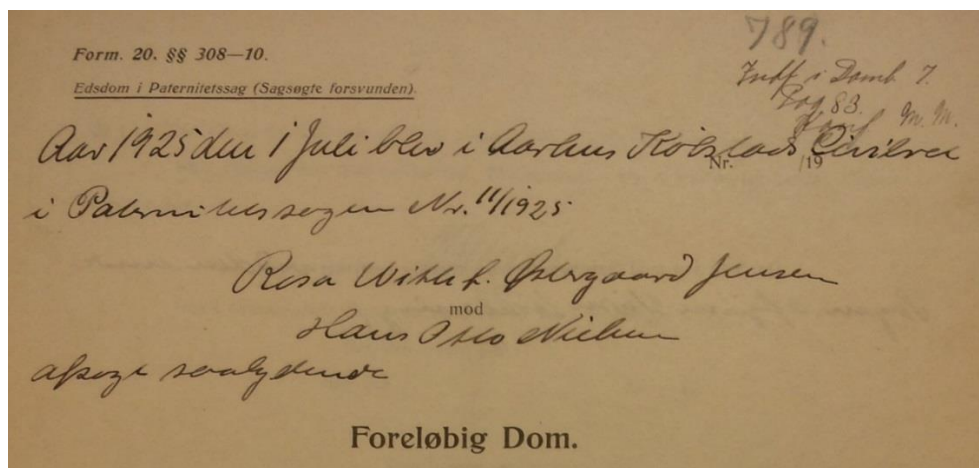 Form. 20. §§ 308—10.
Edsdom i Paternitetssag (Sagsøgte forsvunden).
789.
Indf i Domb 7.
Pag 83.
M. M.
Aar 1925 den 1 Juli blev i Aarhus Købstads Civilret
Nr. /19
i Paternitetssagen Nr. 11/1925
Rosa f. Østergaard Jensen
mod
Hans Otto Nielsen
afsagt saalydende
Foreløbig Dom.